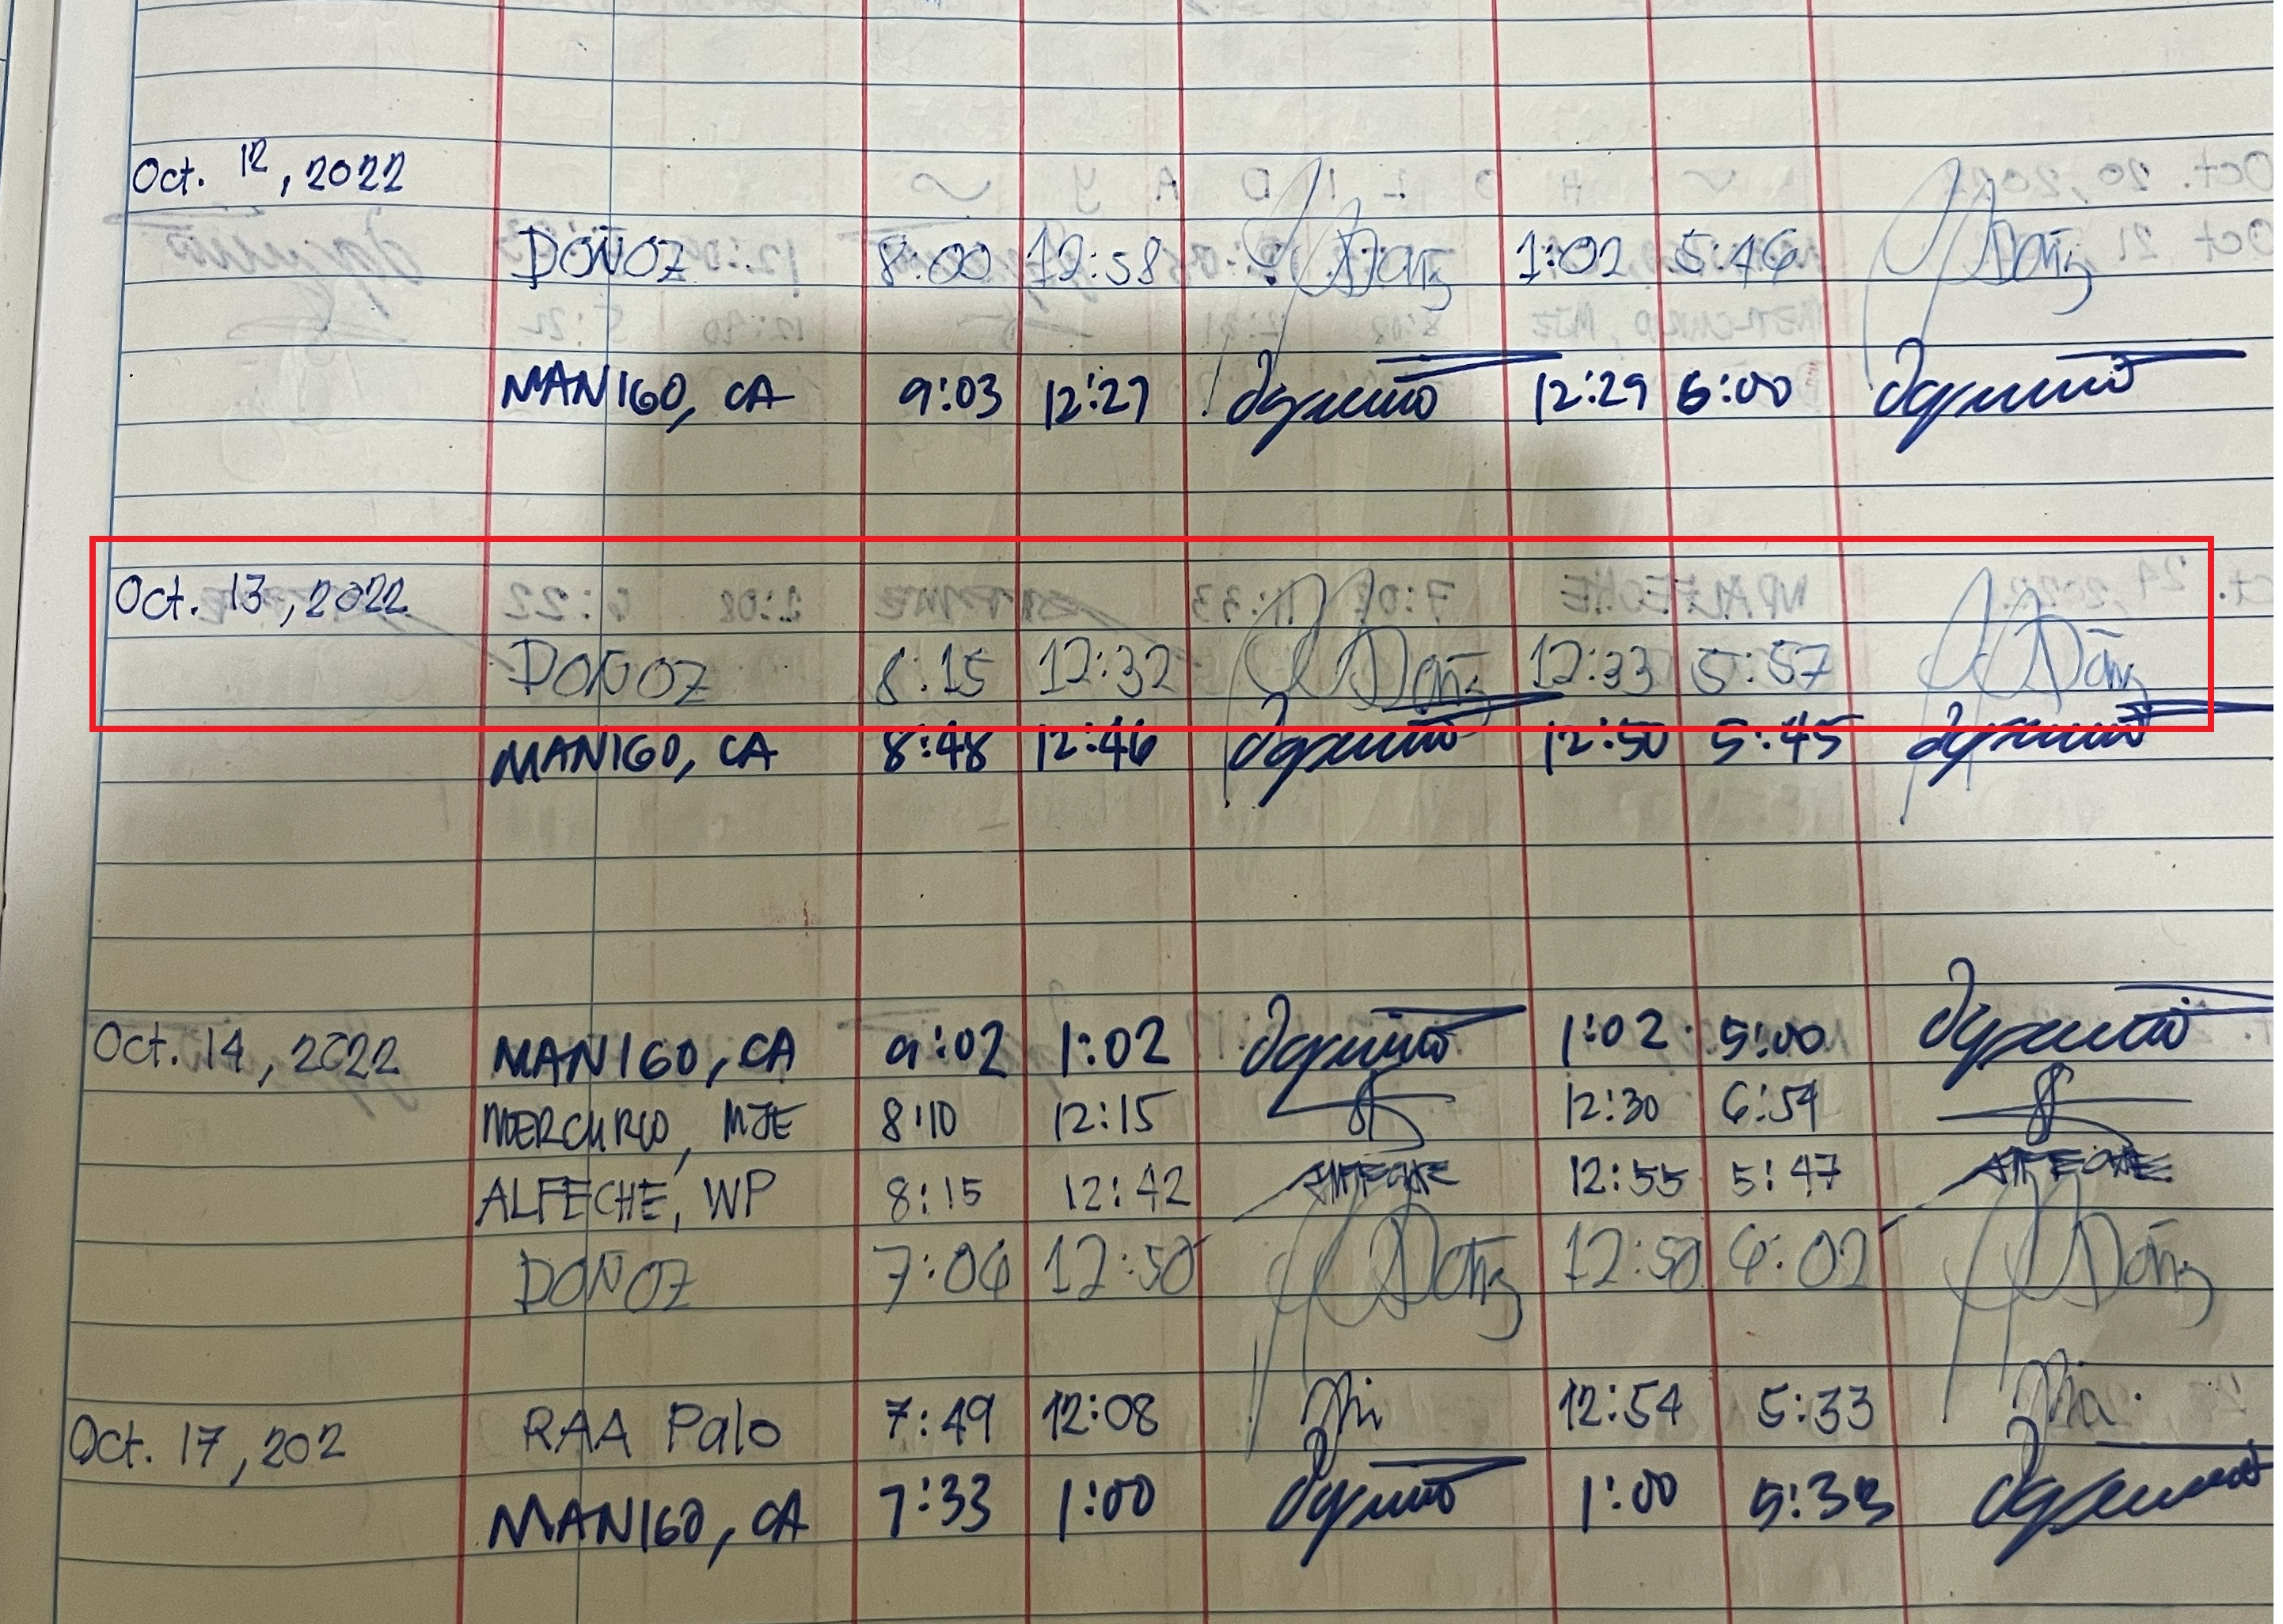 Oct. 12, 2022
DOÑOZ 8:00 12:58 1:02 5:46
MANIGO, CA 9:03 12:27 12:29 6:00
Oct. 13, 2022
DOÑOZ 8:15 12:32 12:33 5:57
MANIGO, CA 8:48 12:46 12:50 5:45
Oct. 14, 2022 MANIGO, CA 9:02 1:02 1:02 5:00
MERCURIO, MJE 8:10 12:15 12:30 6:54
ALFECHE, WP 8:15 12:42 ALFECHE 12:55 5:47 ALFECHE
DOÑOZ 7:06 12:50 12:50 6:02
RAA Palo 7:49 12:08 12:54 5:33
Oct. 17, 202
MANIGO, CA 7:33 1:00 1:00 5:33